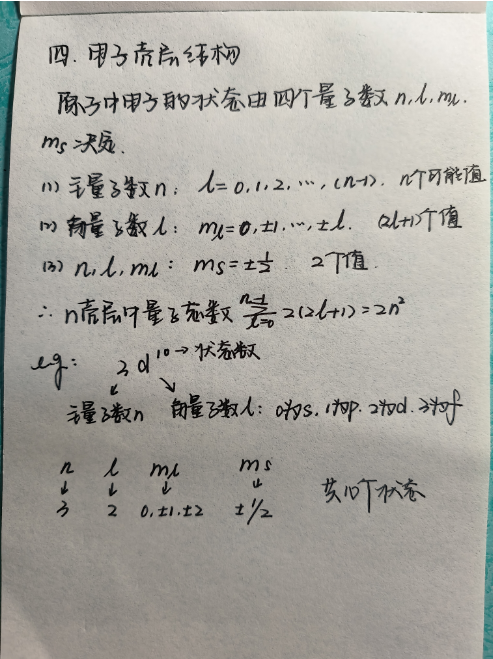 四. 电子壳层结构
原子中电子的状态由四个量子数 n, l, ml.
ms 决定.
(1) 主量子数 n: l=0,1,2,…,(n-1). n个可能值
(2) 角量子数 l: ml=0,±1,…,±l. (2l+1)个值
(3) n, l, ml: ms=±1/2 2个值.
∴ n壳层中量子态数 ∑_{l=0}^{n-1} 2(2l+1)=2n²
eg: 3d¹⁰→状态数
主量子数n 角量子数l: 0为s. 1为p. 2为d. 3为f
n l ml ms
↓ ↓ ↓ ↓
3 2 0.±1.±2 ±1/2 共10个状态